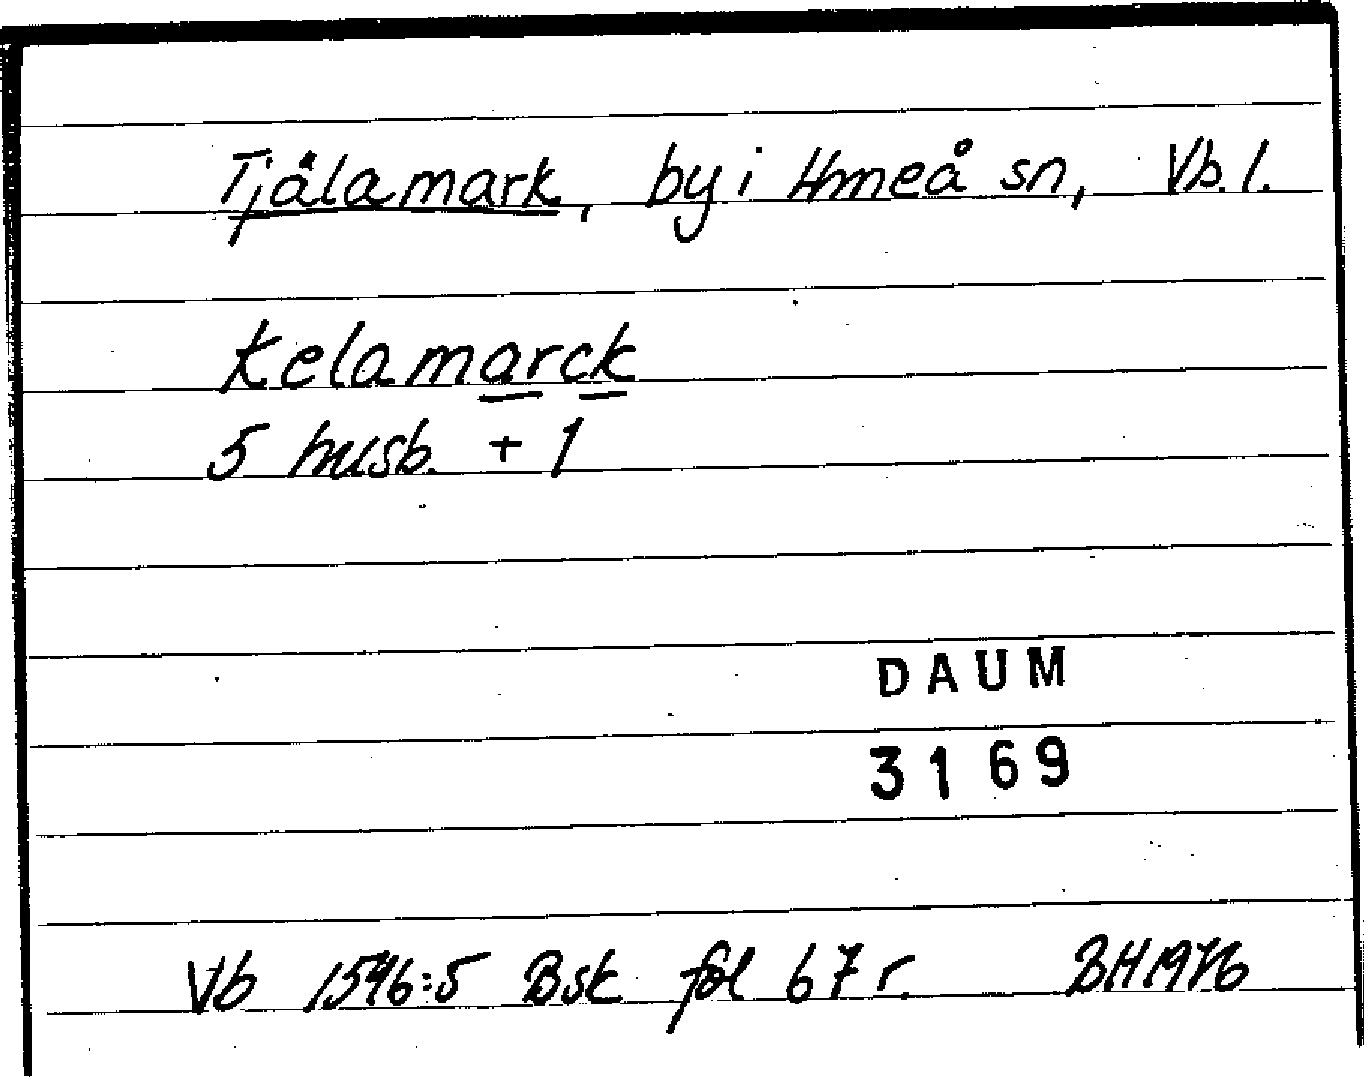 Tjälamark, by i Umeå sn, Vb. l.
Kelamarck
5 husb. + 1
DAUM
3169
Vb 1546:5 Bsk fol 67 r. BH 1976